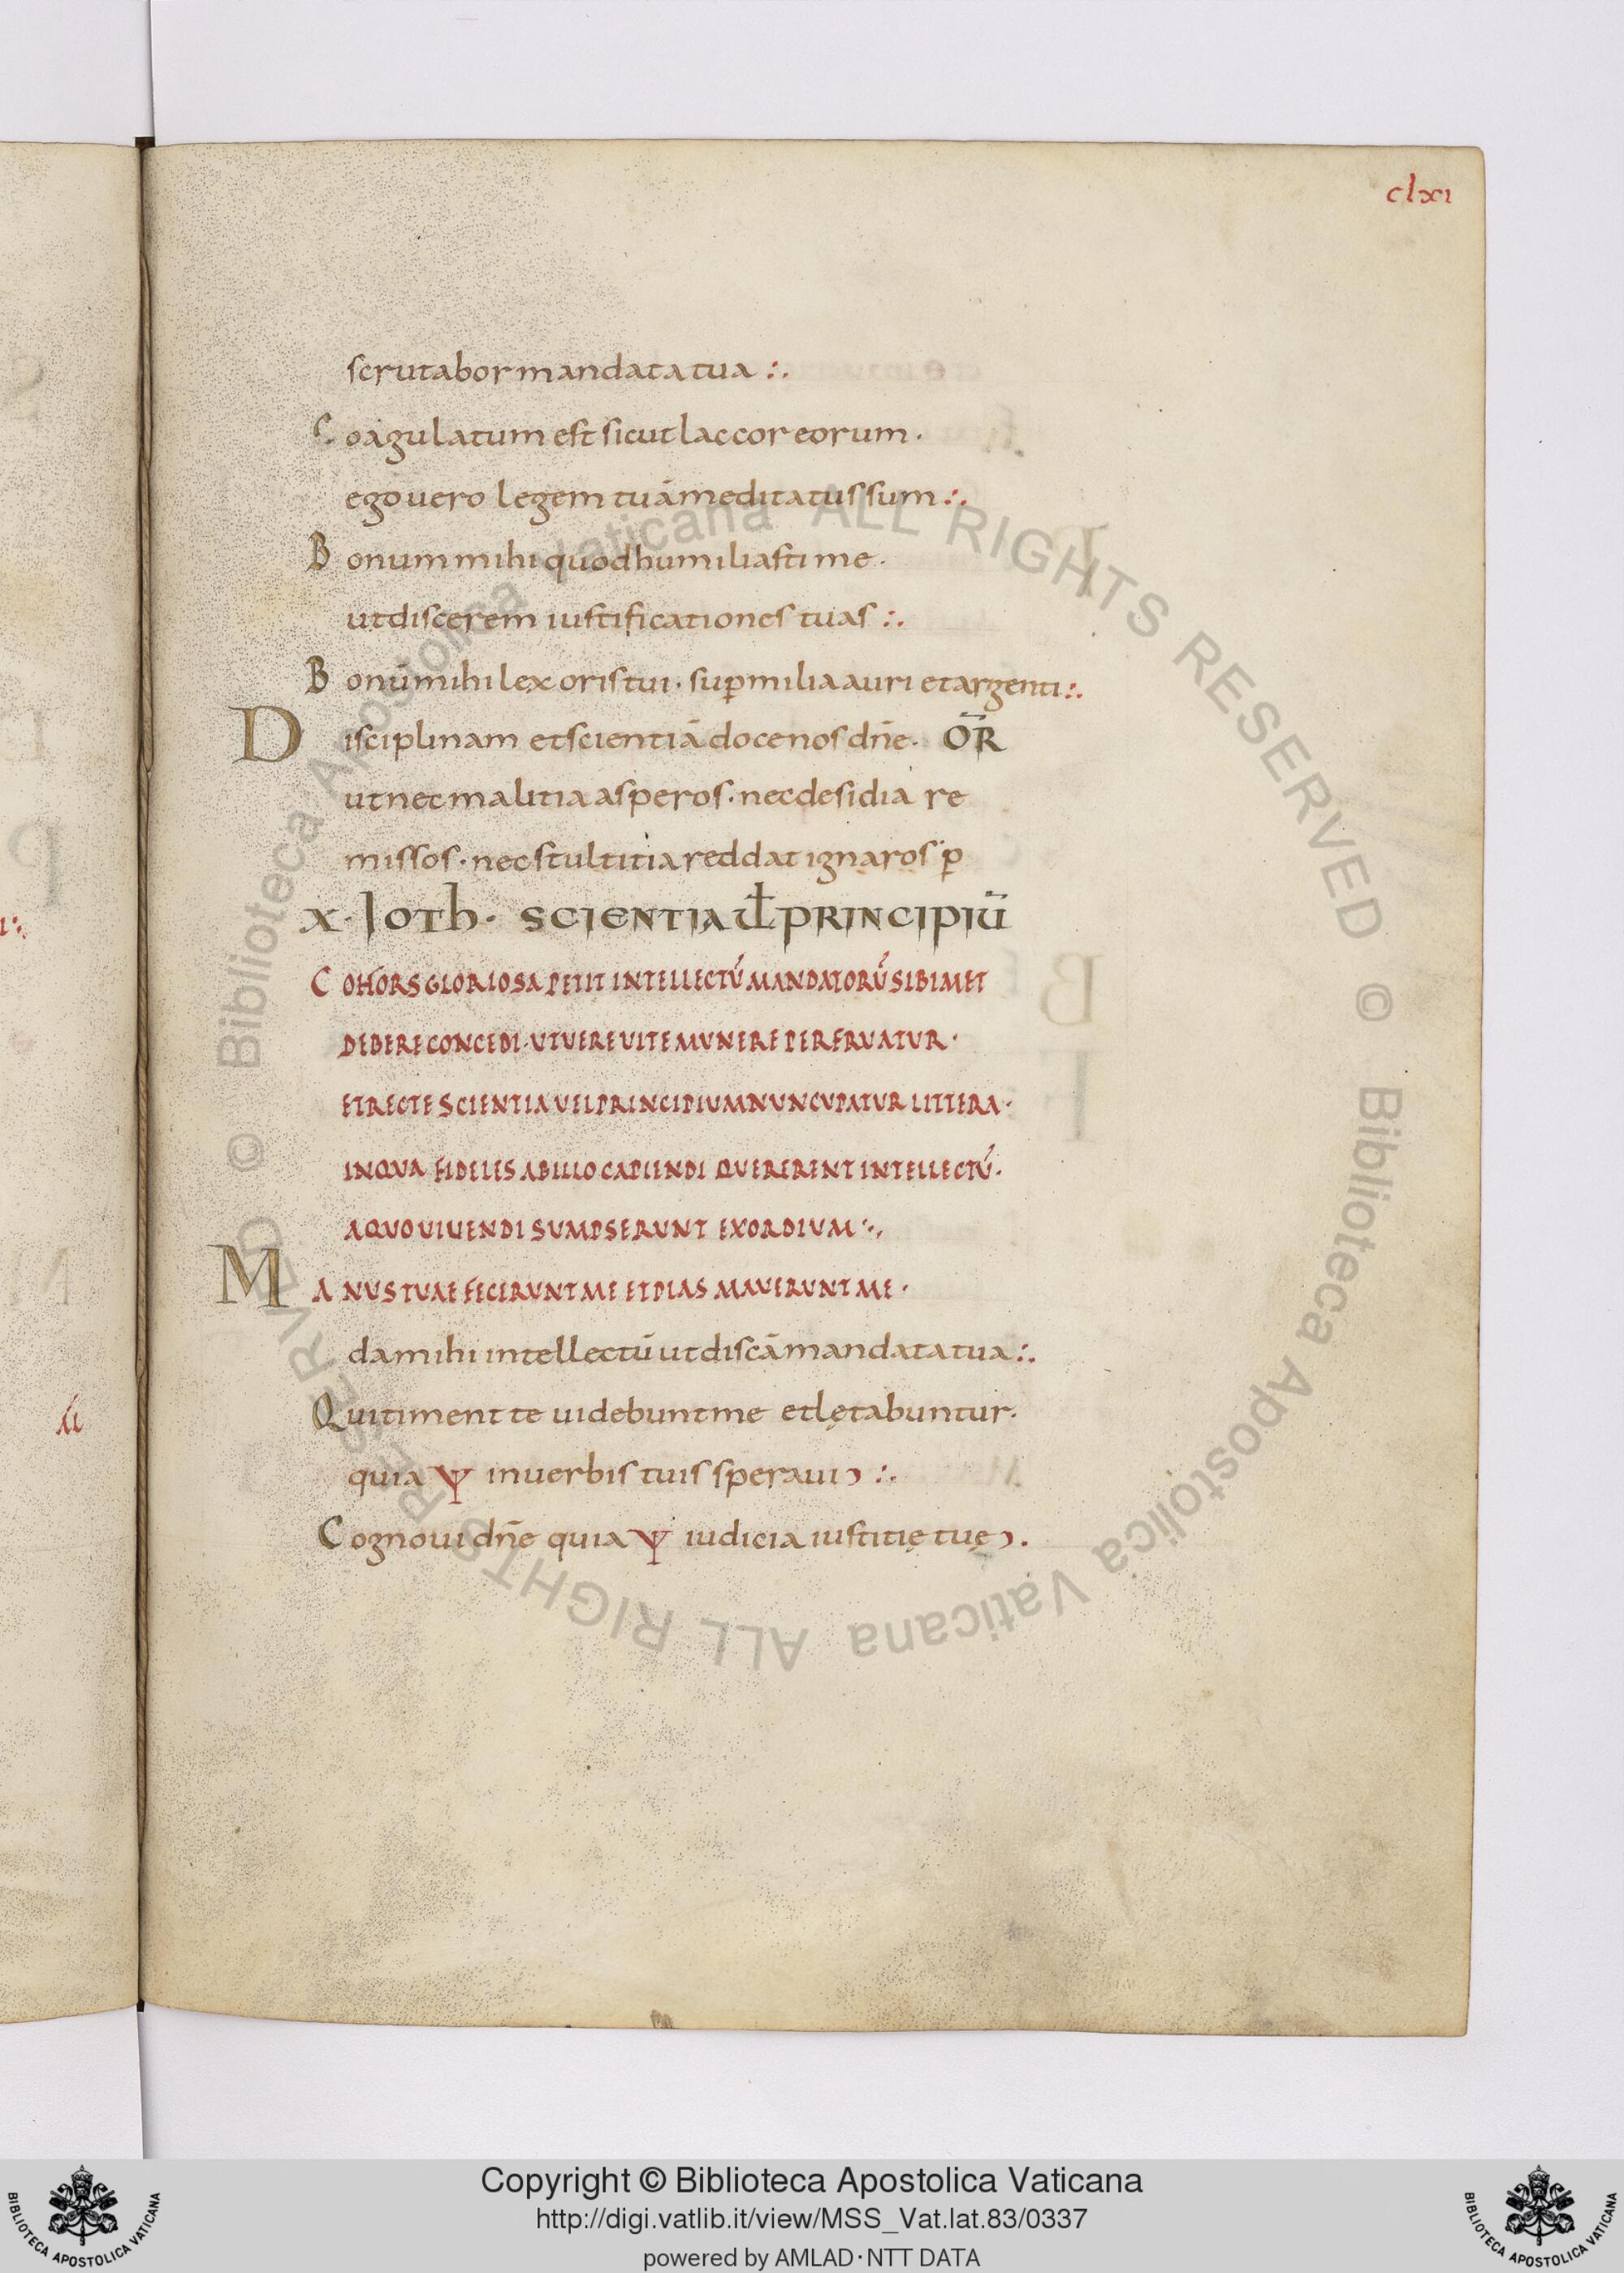 clxi
scrutabor mandata tua :.
Coagulatum est sicut lac cor eorum .
ego uero legem tuā meditatus sum :.
Bonum mihi quod humiliasti me .
ut discerem iustificationes tuas :.
Bonū mihi lex oris tui . sup̄ milia auri et argenti :.
Disciplinam et scientiā doce nos dn̄e . OR̄
ut nec malitia asperos . nec desidia re
missos . nec stultitia reddat ignaros . p̄
X . IOTh . SCIENTIA Ul̄ PRINCIPIŪ
COHORS GLORIOSA PETIT INTELLECTŪ MANDATORŪ SIBIMET
DEBERE CONCEDI . UT VERE VITE MVNERE PERFRVATVR .
ET RECTE SCIENTIA VEL PRINCIPIUM NUNCVPATVR LITTERA .
IN QVA FIDELES AB ILLO CAPIENDI QUERERENT INTELLECTŪ .
A QUO UIUENDI SUMPSERUNT EXORDIUM :.
MANUS TUAE FECERVNT ME ET PLASMAVERUNT ME .
da mihi intellectū ut discā mandata tua :.
Qui timent te uidebunt me et lętabuntur .
quia Ψ in uerbis tuis speraui :.
Cognoui dn̄e quia Ψ iudicia iustitię tuę .
Copyright © Biblioteca Apostolica Vaticana
http://digi.vatlib.it/view/MSS_Vat.lat.83/0337
powered by AMLAD·NTT DATA
BIBLIOTECA APOSTOLICA VATICANA
BIBLIOTECA APOSTOLICA VATICANA
© Biblioteca Apostolica Vaticana ALL RIGHTS RESERVED © Biblioteca Apostolica Vaticana ALL RIGHTS RESERVED